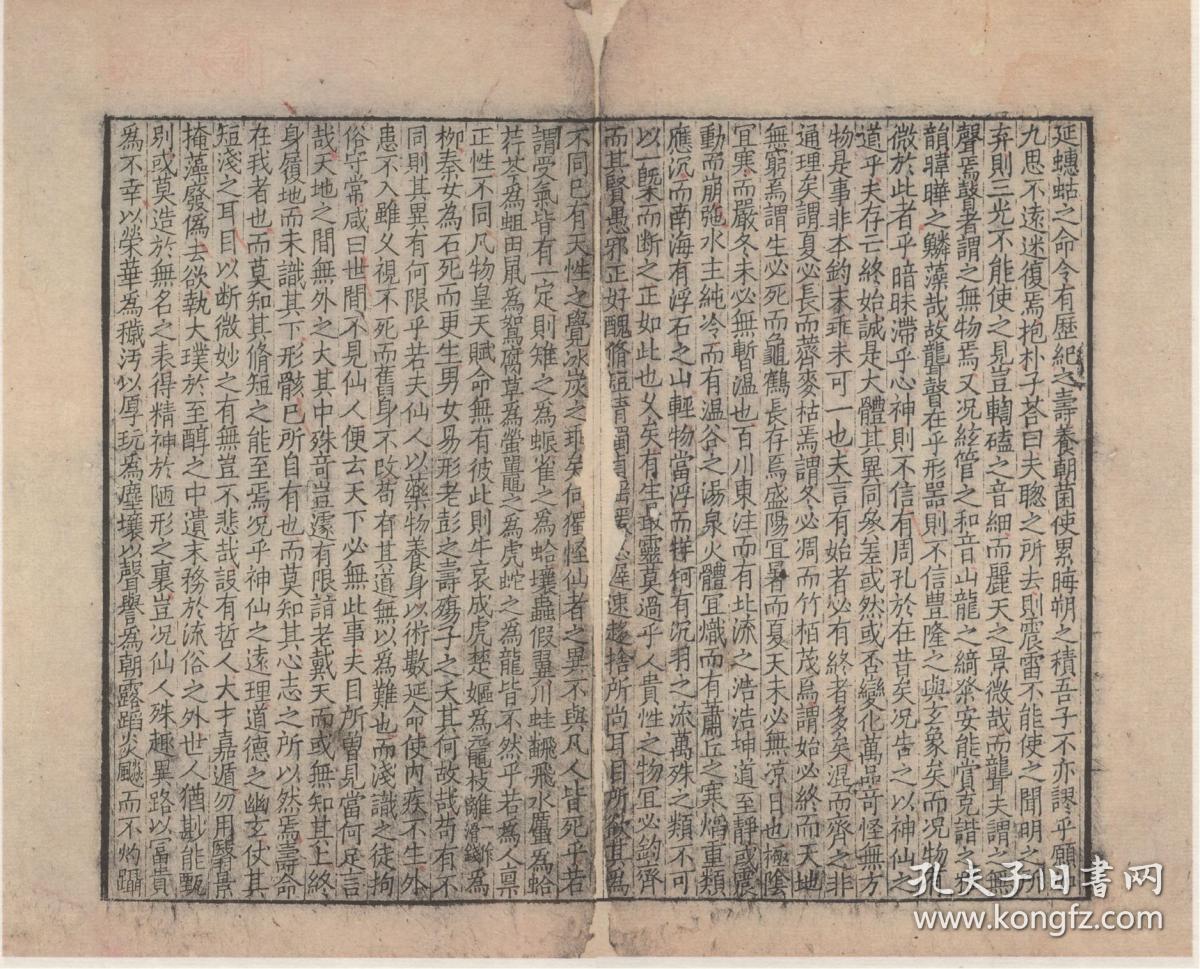 延蟪蛄之命令有歷紀之壽養朝菌使累晦朔之積吾子不亦謬乎願
九思不遠迷復焉抱朴子荅曰夫聦之所去則震雷不能使之聞明之所
弃則三光不能使之見豈輷磕之音細而麗天之景微哉而聾夫謂之無
聲焉瞽者謂之無物焉又况絃管之和音山龍之綺粲安能賞克諧之
韻暐曄之鱗藻哉故聾瞽在乎形器則不信豊隆之與玄象矣而况物
微於此者乎暗昧滯乎心神則不信有周孔於在昔矣况告之以神仙之
道乎夫存亡終始誠是大體其異同參差或然或否變化萬品竒怪無方
物是事非本鈞末乖未可一也夫言有始者必有終者多矣混而齊之非
通理矣謂夏必長而薺麥枯焉謂冬必凋而竹栢茂焉謂始必終而天地
無窮焉謂生必死而龜鶴長存焉盛陽宜暑而夏天未必無凉日也極陰
宜寒而嚴冬未必無暫温也百川東注而有北流之浩浩坤道至靜或震
動而崩弛水主純冷而有温谷之湯泉火體宜熾而有蕭丘之寒熖重類
應沉而南海有浮石之山輕物當浮而牂牁有沉羽之流萬殊之類不可
以一槩而断之正如此也乆矣有生最靈莫過乎人貴性之物冝必鈞
而其賢愚邪正好醜脩短清遲速趍捨所尚耳目所欲其為
不同已有天性之覺冰炭之乖矣何獨怪仙者之異不與凡人皆死乎若
謂受氣皆有一定則雉之為蜃雀之為蛤壤蟲假翼川蛙飜飛水蠆為蛤
荇苓為蛆田䑕為鴽腐草為螢鼉之為虎蛇之為龍皆不然乎若為人禀
正性不同凡物皇天賦命無有彼此則牛哀成虎楚嫗為黿枝離一作滑錢為
桺秦女為石死而更生男女易形老彭之壽殤子之夭其何故哉苟有不
同則其異有何限乎若夫仙人以藥物養身以術數延命使内疾不生外
患不入雖乆視不死而舊身不改苟有其道無以為難也而淺識之徒拘
俗守常咸曰世間不見仙人便云天下必無此事夫目所曽見當何足言
哉天地之間無外之大其中殊竒豈遽有限詣老戴天而或無知其上終
身履地而未識其下形骸已所自有也而莫知其心志之所以然焉壽命
在我者也而莫知其脩短之能至焉况乎神仙之遠理道德之幽玄仗其
短淺之耳目以断微妙之有無豈不悲哉設有哲人大才嘉遁勿用翳景
掩藻廢偽去欲執大璞於至醇之中遺末務於流俗之外世人猶尠能甄
别或莫造於無名之表得精神於陋形之裏豈况仙人殊趣異路以冨貴
為不幸以榮華為穢汚以厚玩為塵壤以聲譽為朝露蹈炎飈而不灼躡
孔夫子旧书网
www.kongfz.com